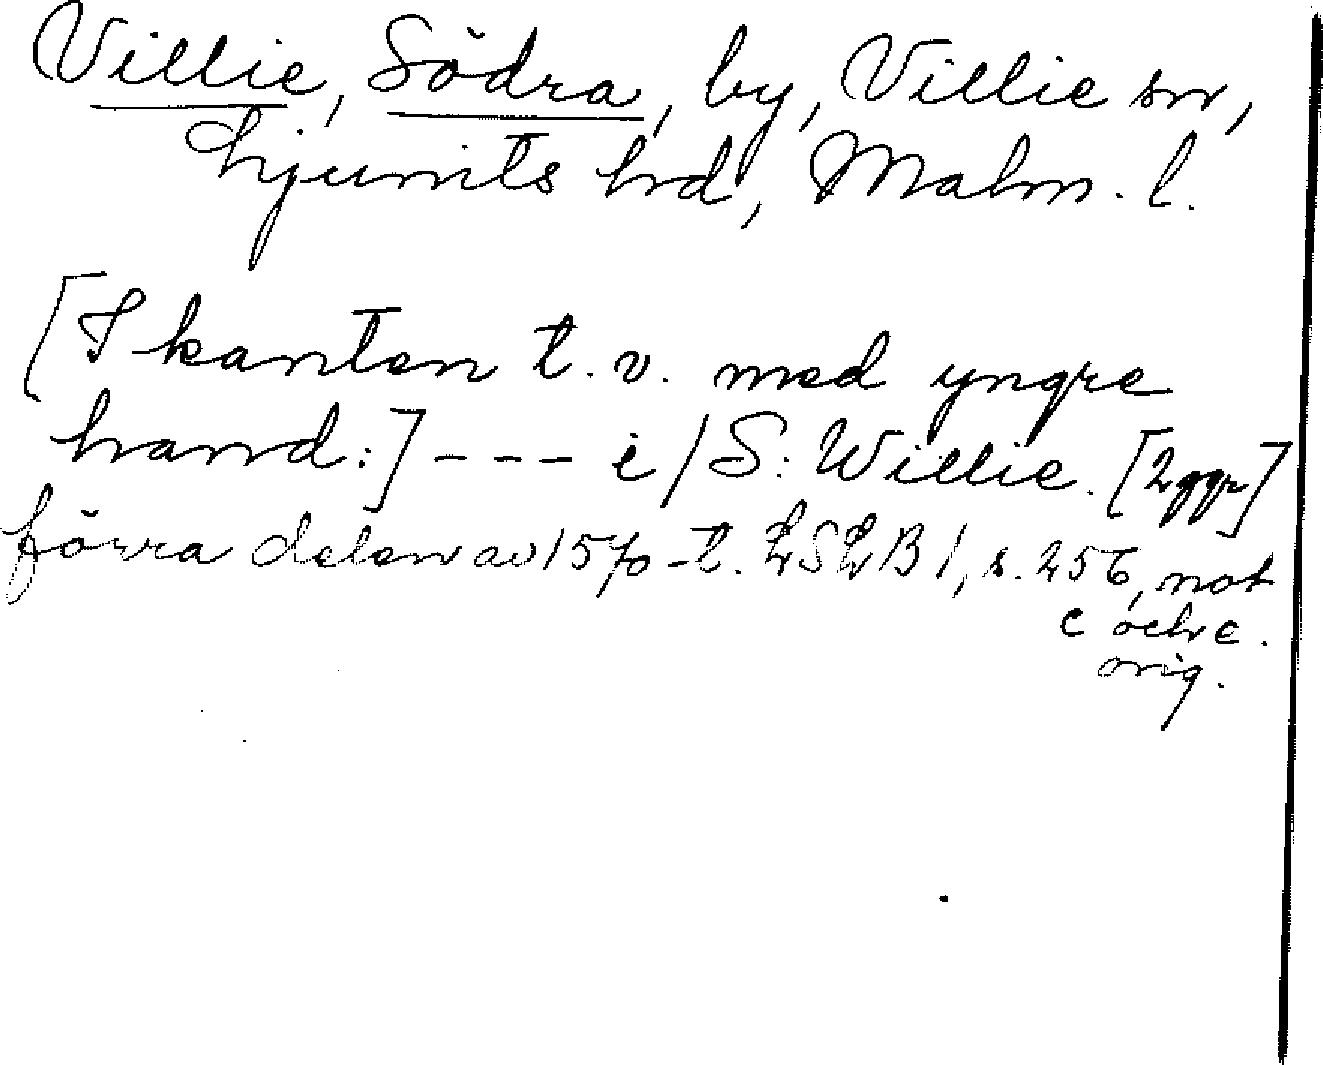 Villie, Södra, by, Villie sn,
Ljunits hd, Malm. l.
[I kanten t. v. med yngre
hand:] --- i / S: Willie. [2ggr]
förra delen av 1570-t. LSLB 1, s. 256, not
c och e.
orig.